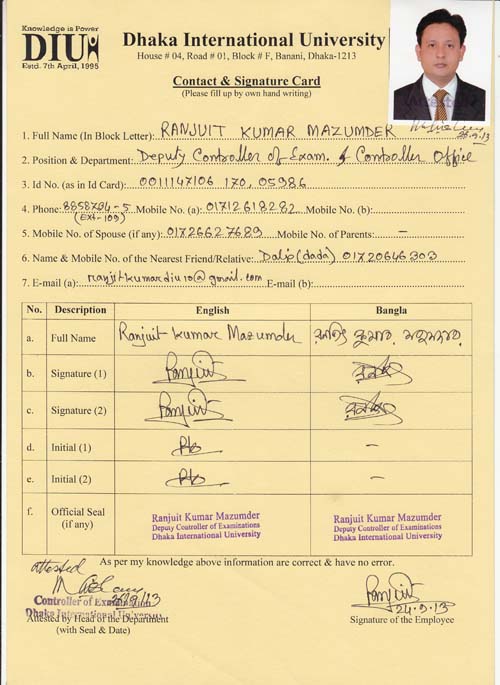 Knowledge is Power
DIU
Estd. 7th April, 1995
Dhaka International University
House # 04, Road # 01, Block # F, Banani, Dhaka-1213
Contact & Signature Card
(Please fill up by own hand writing)
Attested
1. Full Name (In Block Letter): RANJUIT KUMAR MAZUMDER
2. Position & Department: Deputy Controller of Exam. & Controller Office
3. Id No. (as in Id Card): 0011147106 170, 05986
4. Phone: 8858734-5 Mobile No. (a): 01712618282 Mobile No. (b):
(Ext-109)
5. Mobile No. of Spouse (if any): 01726627689 Mobile No. of Parents: –
6. Name & Mobile No. of the Nearest Friend/Relative: Dalip (dada) 01720646303
7. E-mail (a): ranjitkumardiu10@gmail.com E-mail (b):
No. Description English Bangla
a. Full Name Ranjuit Kumar Mazumder রনজিৎ কুমার মজুমদার
b. Signature (1) Ranjuit
c. Signature (2) Ranjuit
d. Initial (1) –
e. Initial (2) –
f. Official Seal (if any) Ranjuit Kumar Mazumder Ranjuit Kumar Mazumder
Deputy Controller of Examinations Deputy Controller of Examinations
Dhaka International University Dhaka International University
As per my knowledge above information are correct & have no error.
Attested
Controller of Examination
Dhaka International University
Attested by Head of the Department
(with Seal & Date)
Ranjuit
24.9.13
Signature of the Employee